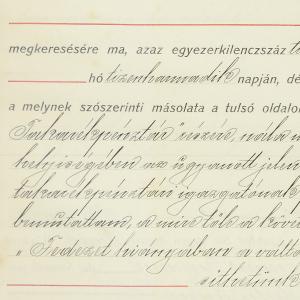 megkeresésére ma, azaz egyezerkilenczszáz
hó tizenharmadik napján, dé
a melynek szószerinti másolata a tulsó oldalo
Takarékpénztár" részv. nála
helyiségében az ugyanott jelen
takarékpénztár igazgatónak
bemutattam, a mire tőle a köve
„Fedezet hiányában a váltó